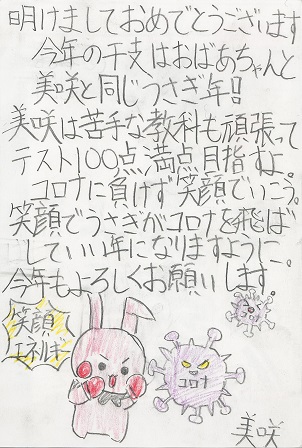 明けましておめでとうございます
今年の干支はおばあちゃんと
美咲と同じうさぎ年!!
美咲は苦手な教科も頑張って
テスト100点満点目指すよ。
コロナに負けず笑顔でいこう。
笑顔でうさぎがコロナを飛ば
していい年になりますように。
今年もよろしくお願いします。
笑顔
エネルギー
コロナ
美咲